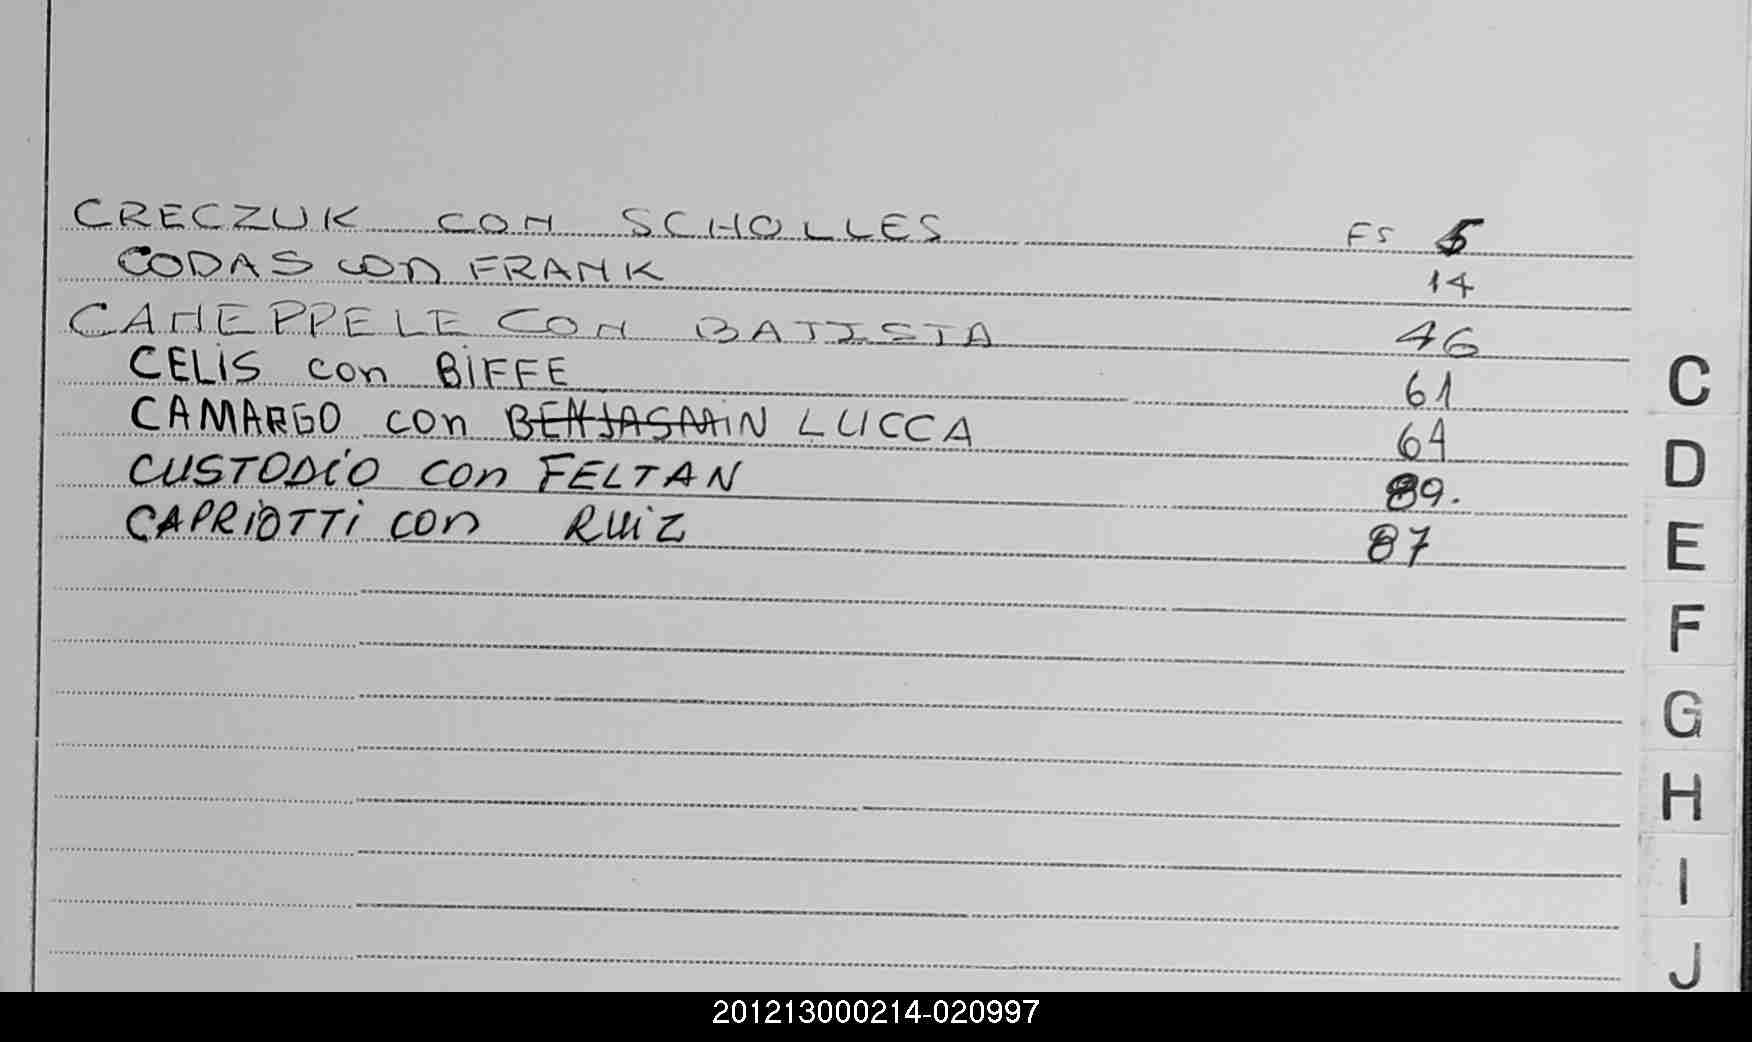 CRECZUK CON SCHOLLES FS 5
CODAS CON FRANK 14
CAHEPPELE CON BATISTA 46
CELIS con BIFFE 61
CAMARGO con BENJASMIN LUCCA 64
CUSTODIO con FELTAN 89.
CAPRIOTTI con RUIZ 87
C
D
E
F
G
H
I
J
201213000214-020997